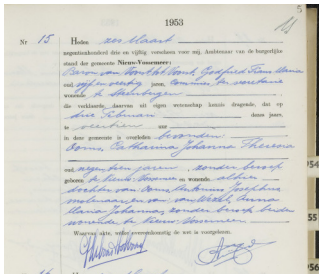 1953
5
Nr 15
Heden zes Maart
negentienhonderd drie en vijftig verscheen voor mij, Ambtenaar van de burgerlijke
stand der gemeente Nieuw-Vossemeer:
Baron van Voorst tot Voorst, Godfried Frans Maria
oud vijf en veertig jaren,
wonende te Steenbergen
die verklaarde, daarvan uit eigen wetenschap kennis dragende, dat op
drie Februari dezes jaars,
te veertien uur
in deze gemeente is overleden bevonden
Ooms, Catharina Johanna Theresia
oud negentien jaren, zonder beroep
geboren te Nieuw-Vossemeer en wonende aldaar
dochter van Ooms Antonius Josephus
molenaar en van Anna
Maria Johanna, zonder beroep beiden
wonende te Nieuw Vossemeer
Waarvan akte, welke overeenkomstig de wet is voorgelezen.